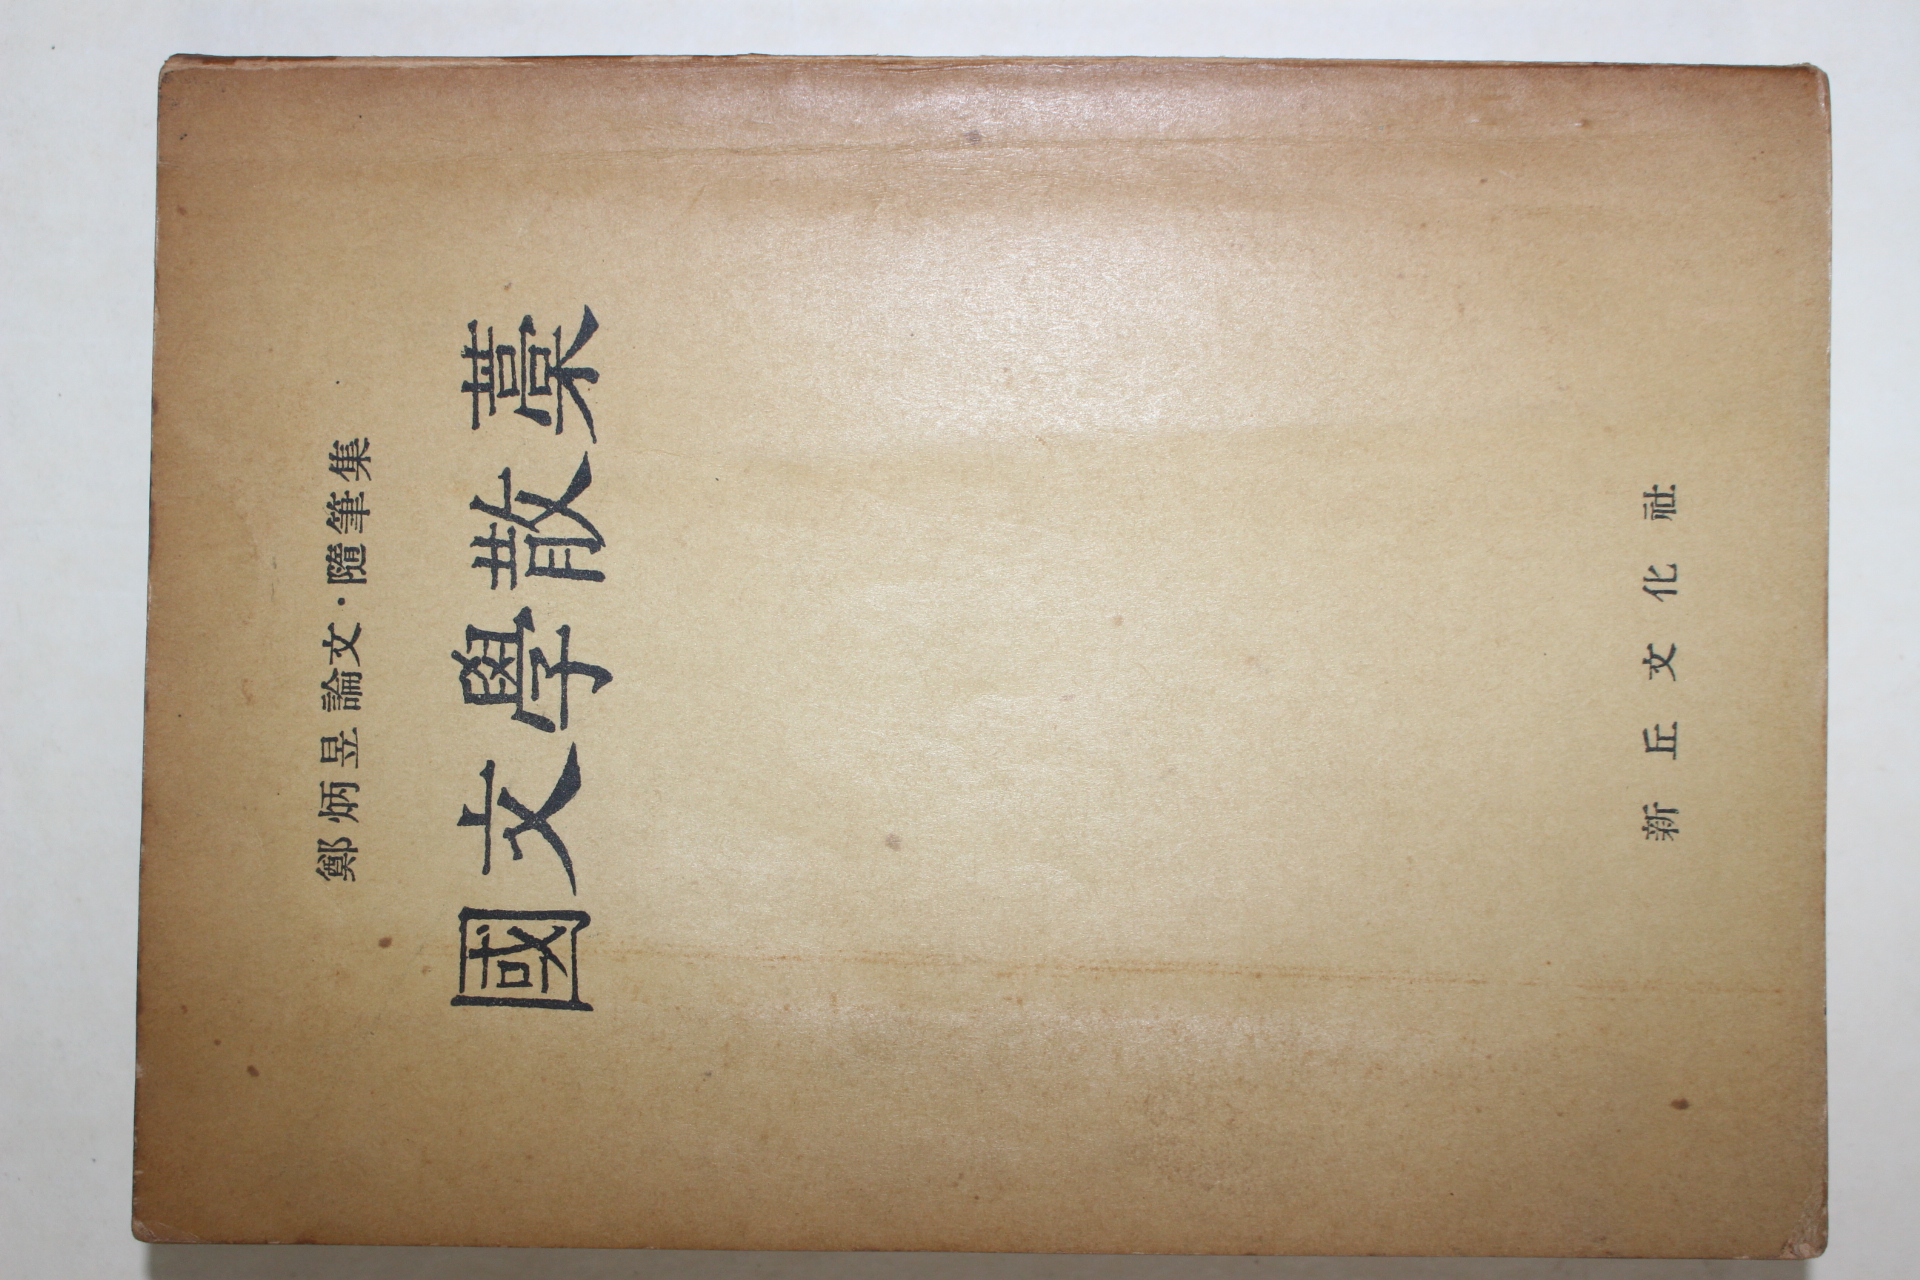 鄭炳昱論文·隨筆集
國文學散藁
新丘文化社